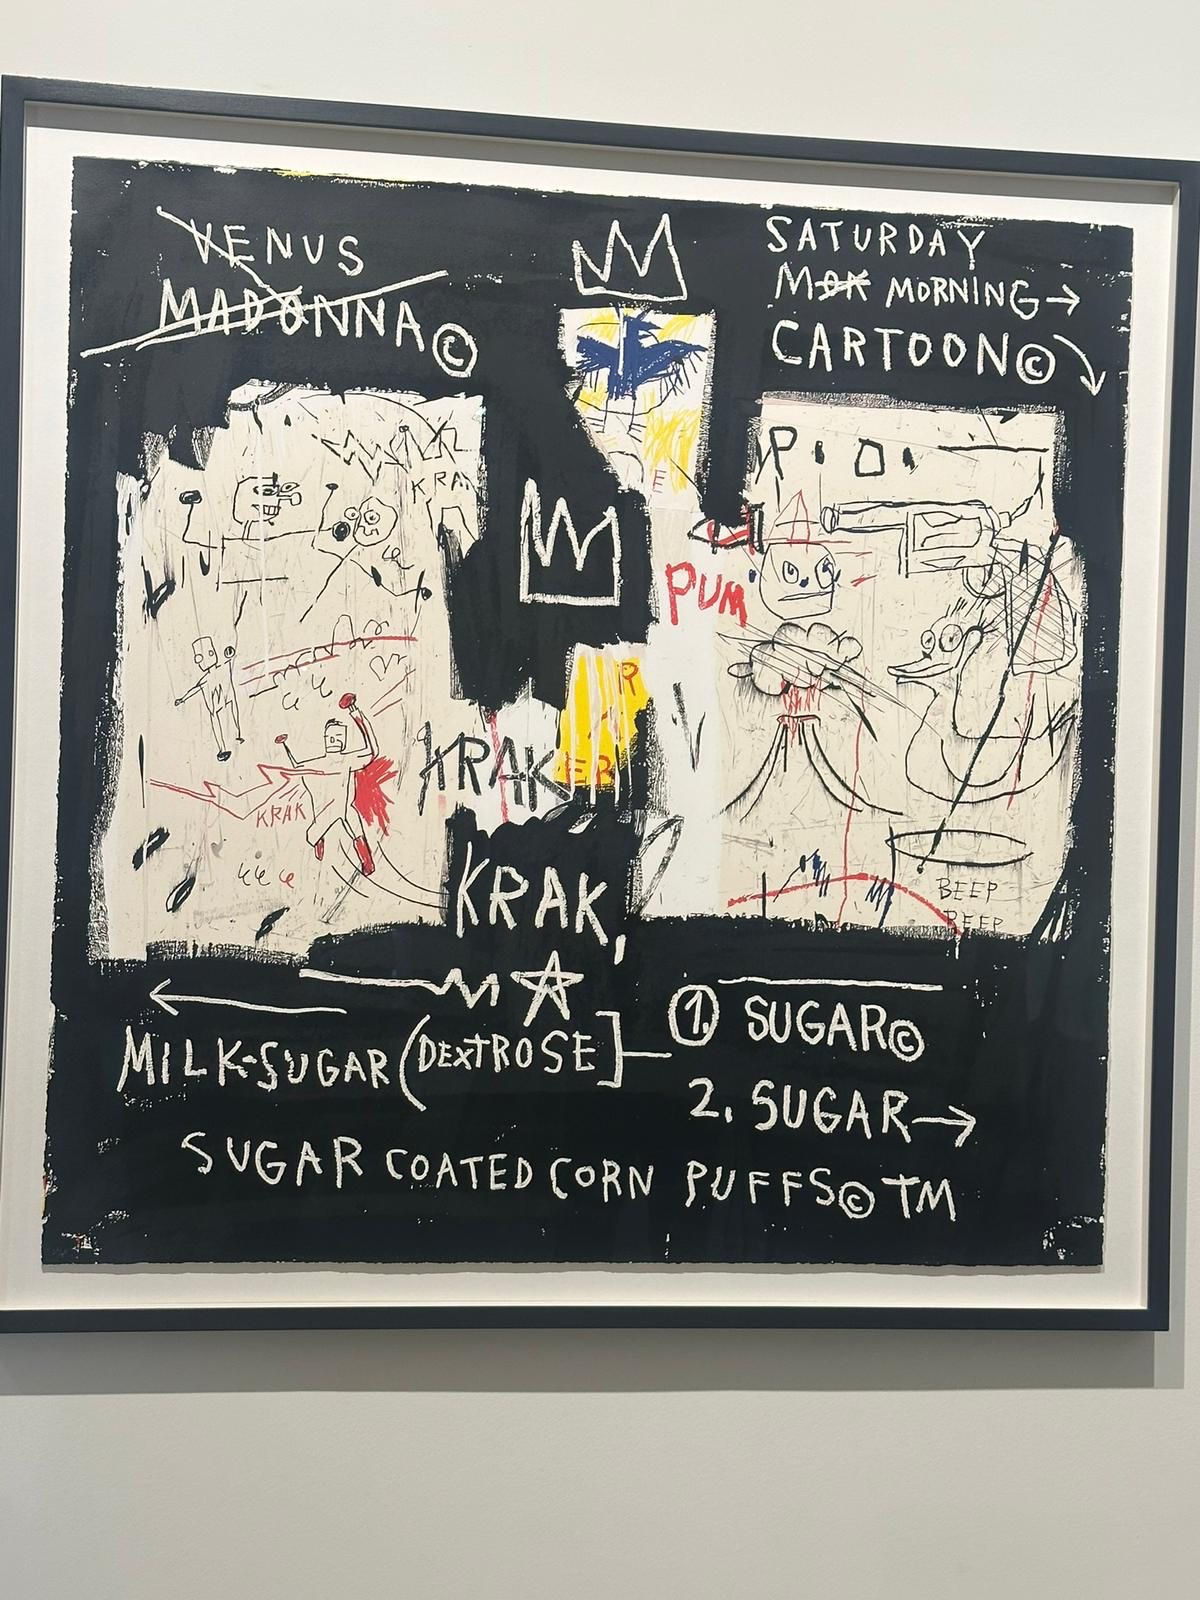 VENUS
MADONNA©
SATURDAY
MOR MORNING→
CARTOON©
KRA
P.O.
E
PUM
R
KRAK
EB
KRAK
KRAK,
BEEP
BEEP
MILK-SUGAR (DEXTROSE]
① SUGAR©
2. SUGAR→
SUGAR COATED CORN PUFFS© TM